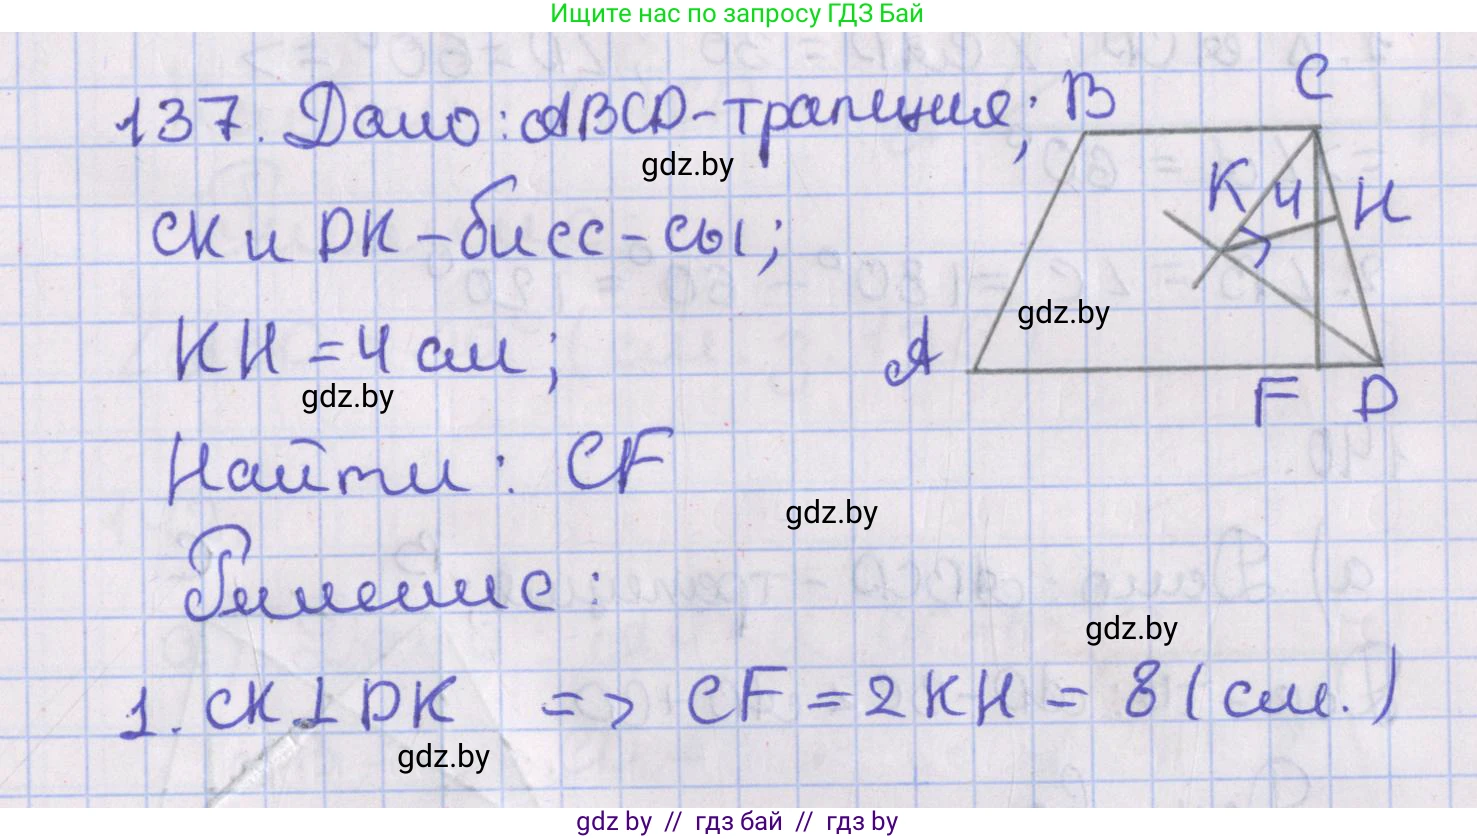 Ищите нас по запросу ГДЗ Бай
137. Дано: ABCD-трапеция;
B
C
gdz.by
K
4
H
CK и DK - бисс-сы;
gdz.by
KH = 4 см;
A
gdz.by
F
D
Найти: CF
gdz.by
Решение:
gdz.by
1. CK ⊥ DK => CF = 2KH = 8 (см.)
gdz.by
gdz by // гдз бай // гдз by